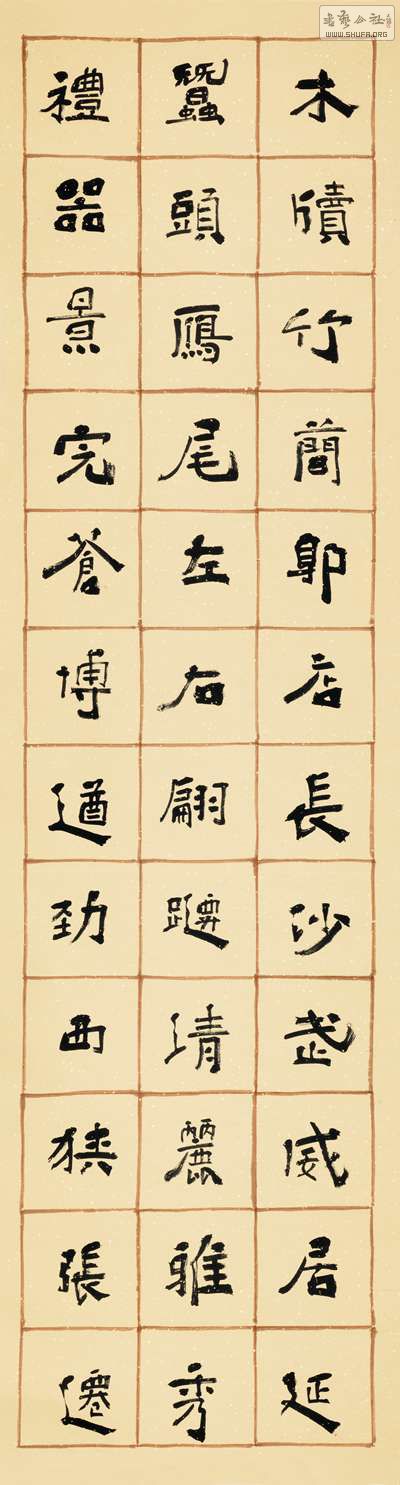 木牘竹簡郭店長沙武威居延
蠶頭鴈尾左右翩躚清麗雅秀
禮器景完蒼博遒勁西狹張遷
書藝公社
WWW.SHUFA.ORG